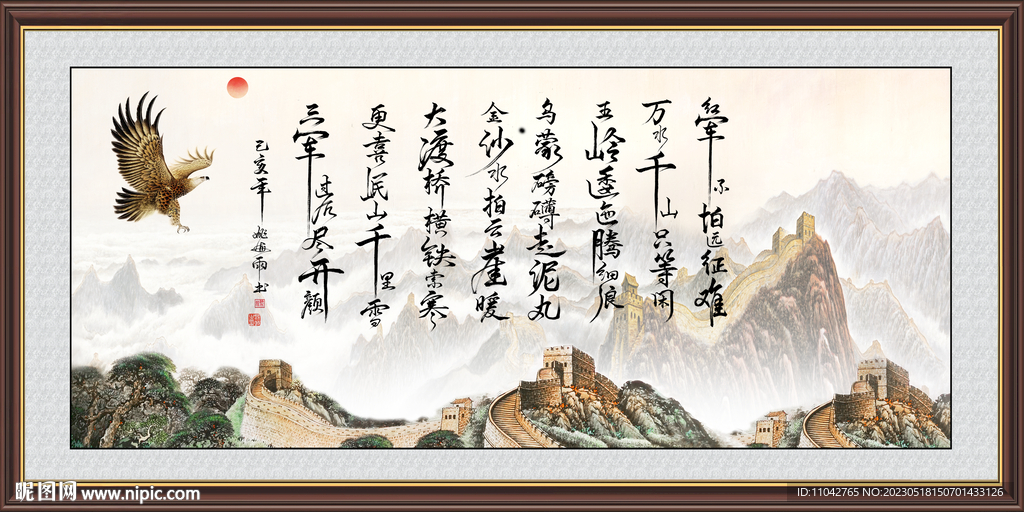 红军不怕远征难
万水千山只等闲
五岭逶迤腾细浪
乌蒙磅礴走泥丸
金沙水拍云崖暖
大渡桥横铁索寒
更喜岷山千里雪
三军过后尽开颜
己亥年 雨书
昵图网 www.nipic.com
ID:11042765 NO:20230518150701433126